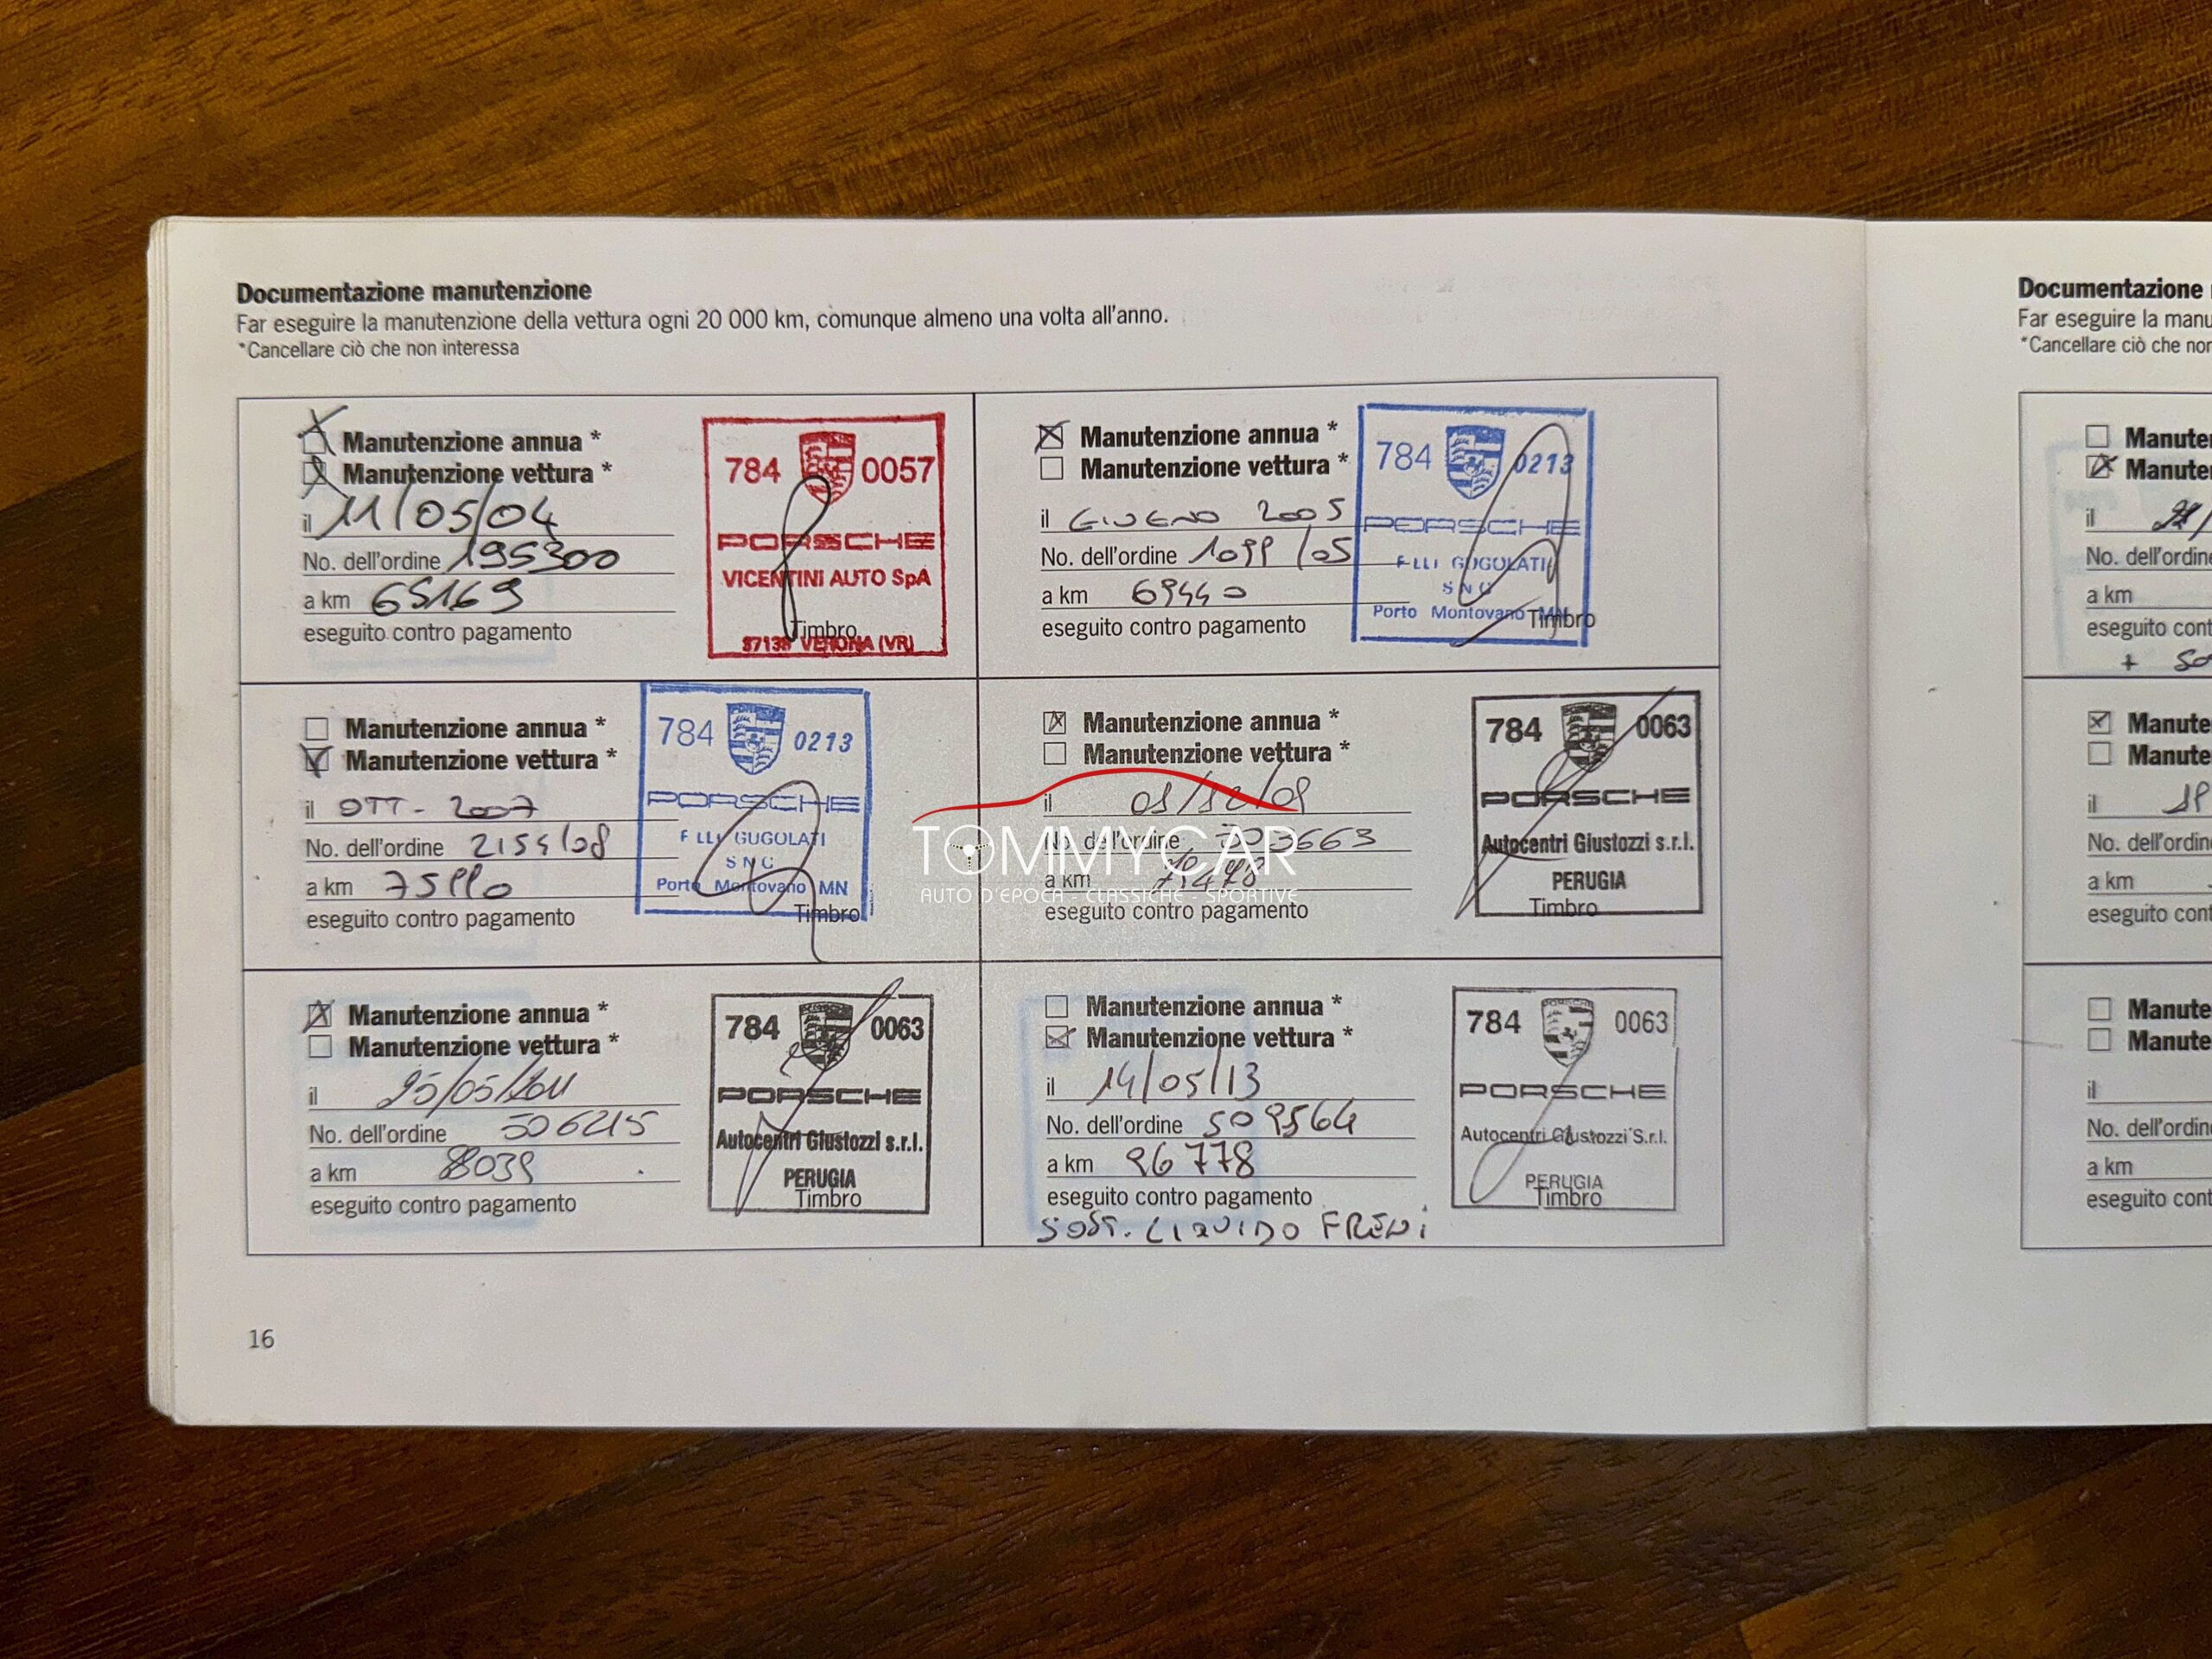 Documentazione manutenzione
Far eseguire la manutenzione della vettura ogni 20 000 km, comunque almeno una volta all'anno.
*Cancellare ciò che non interessa
Manutenzione annua *
Manutenzione vettura *
il 11/05/04
No. dell'ordine 195300
a km 65169
eseguito contro pagamento
784 0057
PORSCHE
VICENTINI AUTO SpA
Timbro
VERONA (VR)
Manutenzione annua *
Manutenzione vettura *
il GIUGNO 2005
No. dell'ordine 1099/05
a km 69440
eseguito contro pagamento
784 0213
PORSCHE
F LLI GUGOLATI
SNC
Porto Montovano MN
Timbro
Manutenzione annua *
Manutenzione vettura *
il OTT - 2007
No. dell'ordine 2154/08
a km
eseguito contro pagamento
784 0213
PORSCHE
F LLI GUGOLATI
SNC
Porto Montovano MN
Timbro
Manutenzione annua *
Manutenzione vettura *
il
No. dell'ordine
a km
eseguito contro pagamento
784 0063
PORSCHE
Autocentri Giustozzi s.r.l.
PERUGIA
Timbro
TOMMYCAR
AUTO D'EPOCA - CLASSICHE - SPORTIVE
Manutenzione annua *
Manutenzione vettura *
il 25/05/2011
No. dell'ordine 506215
a km
eseguito contro pagamento
784 0063
PORSCHE
Autocentri Giustozzi s.r.l.
PERUGIA
Timbro
Manutenzione annua *
Manutenzione vettura *
il 14/05/13
No. dell'ordine 509564
a km 96778
eseguito contro pagamento
SOST. LIQUIDO FRENI
784 0063
PORSCHE
Autocentri Giustozzi S.r.l.
PERUGIA
Timbro
16
Documentazione
Far eseguire la manu
*Cancellare ciò che non
Manute
Manute
il
No. dell'ordine
a km
eseguito cont
+ So
Manute
Manute
il
No. dell'ordine
a km
eseguito cont
Manute
Manute
il
No. dell'ordine
a km
eseguito cont